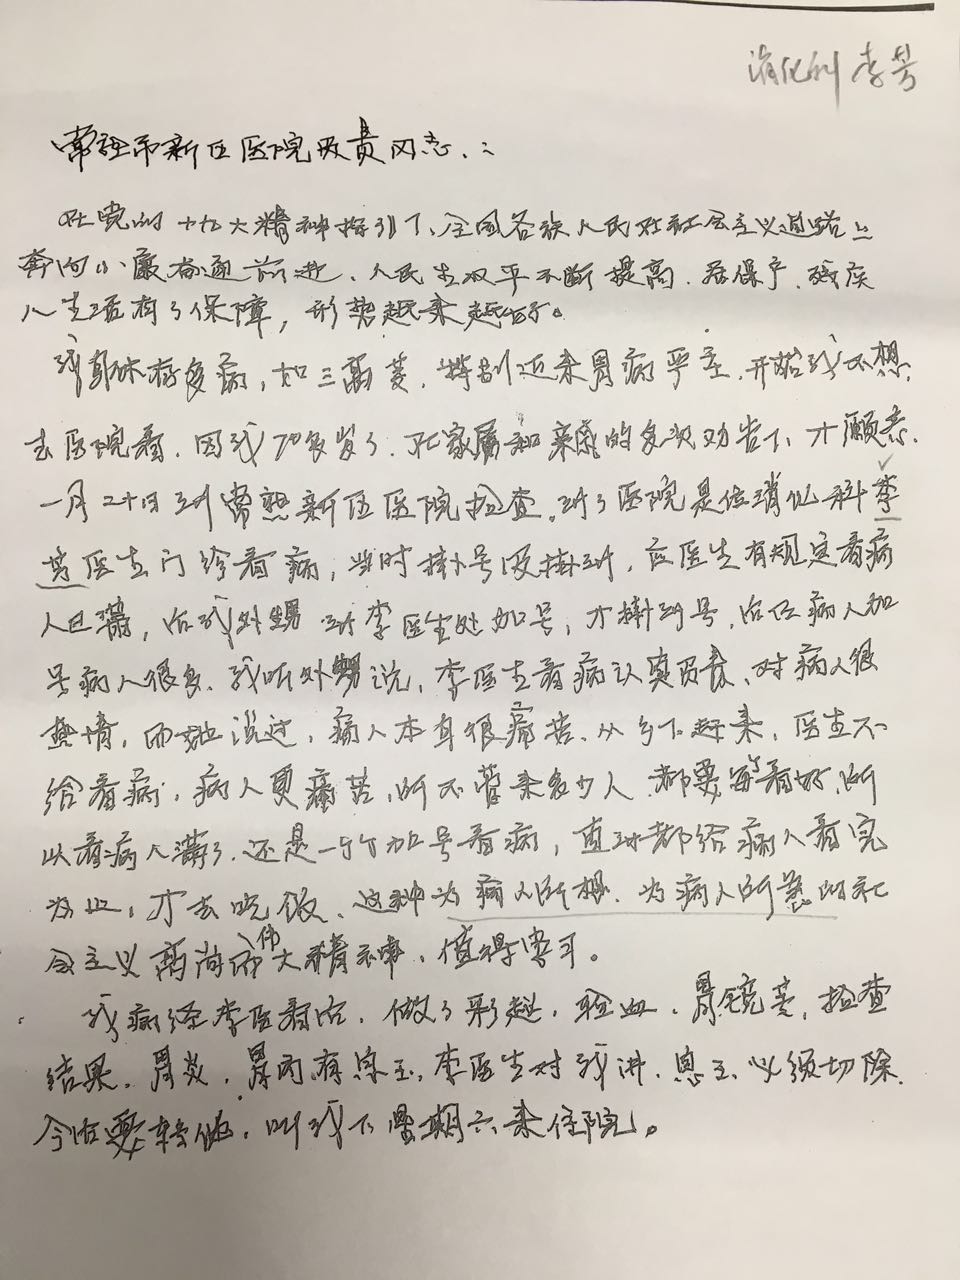 消化科 李芳
常熟市新区医院及贵同志:
在党的十九大精神指引下、全国各族人民在社会主义道路上
奔向小康大道前进、人民生活水平不断提高、老保户、残疾
人生活有了保障，形势越来越好。
我身体有多病，如三高等，特别近来胃病严重，开始我不想
去医院看，因我70多岁了，在家属和亲属的多次劝告下，才愿意
一月二十日到常熟新区医院检查，到了医院是位消化科李
芳医生门诊看病，当时挂号没挂到，应医生有规定看病
人已满，后我外甥到李医生处加号，才挂到号，后任病人加
号病人很多、我听外甥说，李医生看病认真负责、对病人很
热情，而她说过，病人本身很痛苦、从乡下赶来，医生不
给看病，病人更痛苦，所不管来多少人都要每个看好，所
以看病人满了，还是一个个加号看病，直到都给病人看完
为止，才去吃饭、这种为病人所想，为病人所急的社
会主义高尚而伟大精神，值得学习。
我病经李医看后，做了彩超，验血，胃镜等，检查
结果，胃炎，胃内有息肉，李医生对我讲，息肉必须切除
今后要转化，叫我下星期六来住院。